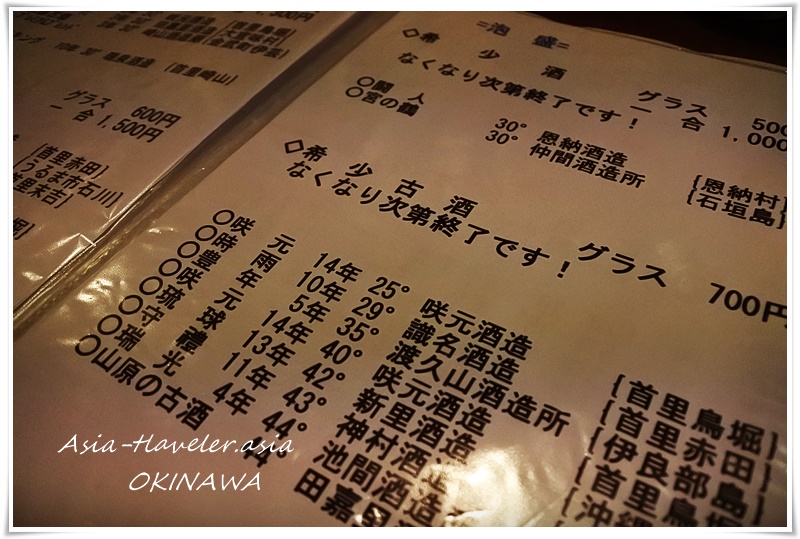 キング 10年 30° 瑞泉酒造 {首里崎山}
グラス 600円
一合 1,500円
{首里赤田}
{うるま市石川}
首里末吉}
=泡 盛=
◇希 少 酒
なくなり次第終了です！
グラス 500
一 合 1,000
〇闘 人 30° 恩納酒造 {恩納村}
〇宮の鶴 30° 仲間酒造所 {石垣島}
◇希 少 古 酒
なくなり次第終了です！
グラス 700円
〇咲 元 14年 25° 咲元酒造 {首里鳥堀}
〇時 雨 10年 29° 識名酒造 {首里赤田}
〇豊 年 5年 35° 渡久山酒造所 {伊良部島}
〇咲 元 14年 40° 咲元酒造 {首里鳥堀
〇琉 球 13年 42° 新里酒造 {沖縄
〇守 禮 11年 43° 神村酒造
〇瑞 光 4年 44° 池間酒造
〇山原の古酒 田嘉里
Asia-Traveler.asia
OKINAWA